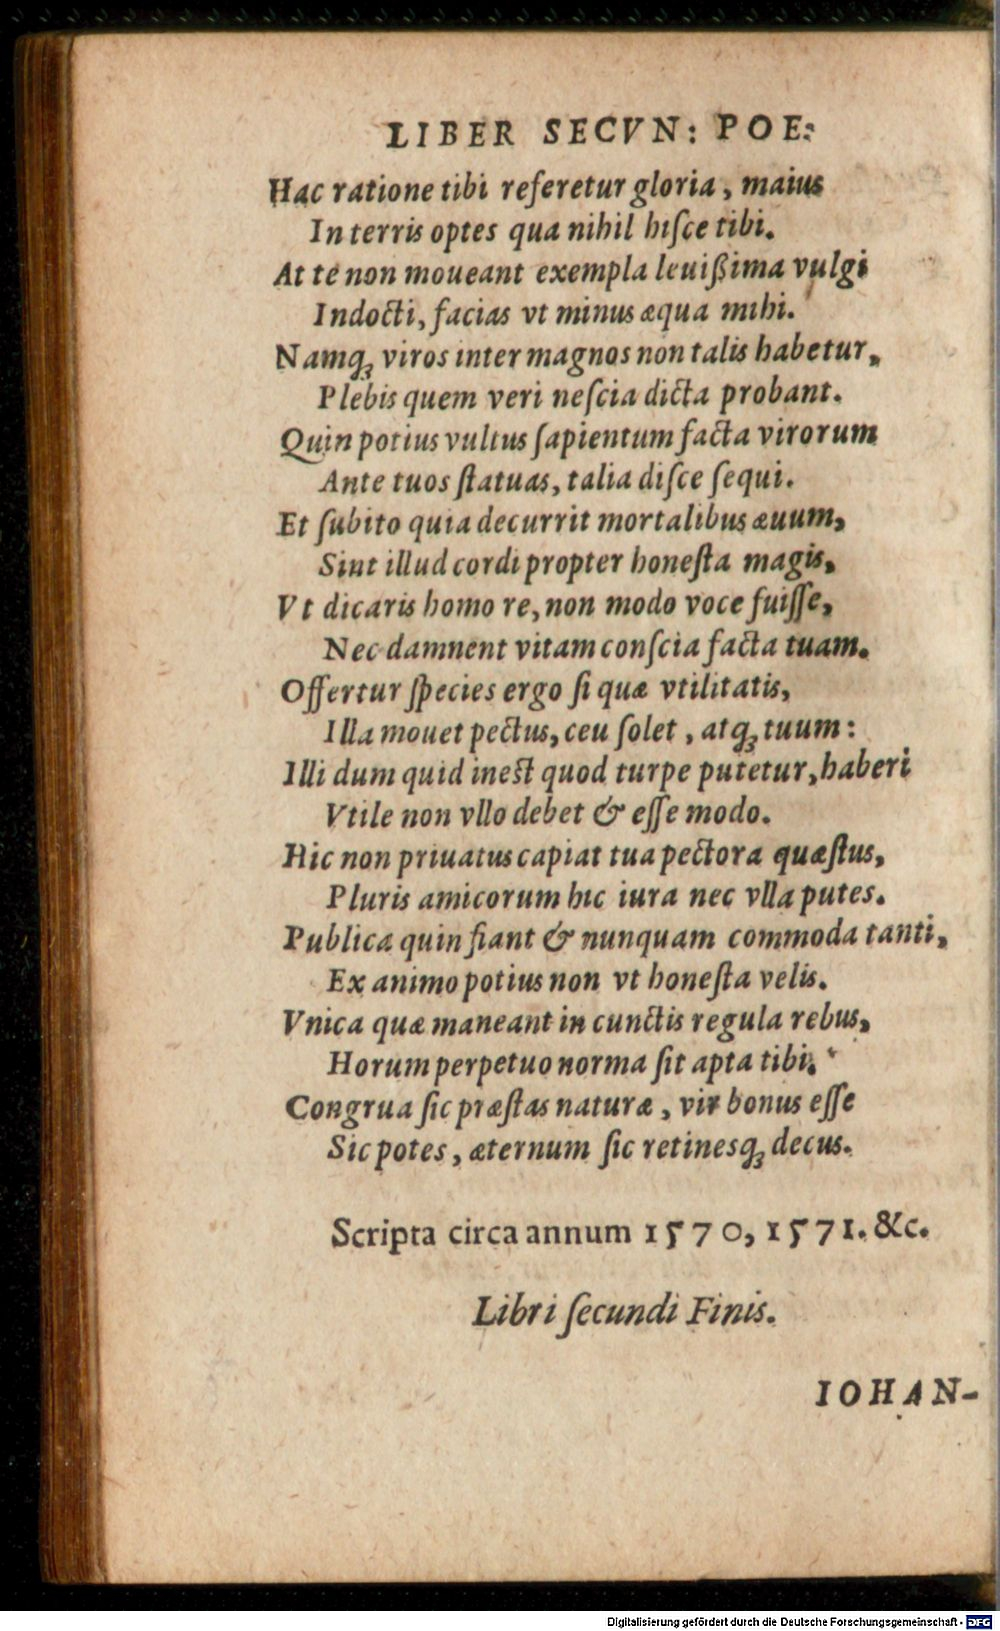 LIBER SECVN: POE:
Hac ratione tibi referetur gloria, maius
In terris optes qua nihil hiſce tibi.
At te non moueant exempla leuißima vulgi
Indocti, facias vt minus æqua mihi.
Namq́ꝫ viros inter magnos non talis habetur,
Plebis quem veri neſcia dicta probant.
Quin potius vultus ſapientum facta virorum
Ante tuos ſtatuas, talia diſce ſequi.
Et ſubito quia decurrit mortalibus æuum,
Sint illud cordi propter honeſta magis,
Vt dicaris homo re, non modo voce fuiſſe,
Nec damnent vitam conſcia facta tuam.
Offertur ſpecies ergo ſi quæ vtilitatis,
Illa mouet pectus, ceu ſolet, atqꝫ tuum:
Illi dum quid inest quod turpe putetur, haberi
Vtile non vllo debet & eſſe modo.
Hic non priuatus capiat tua pectora quæſtus,
Pluris amicorum hic iura nec vlla putes.
Publica quin fiant & nunquam commoda tanti,
Ex animo potius non vt honeſta velis.
Vnica quæ maneant in cunctis regula rebus,
Horum perpetuo norma ſit apta tibi.
Congrua ſic præſtas naturæ, vir bonus eſſe
Sic potes, æternum ſic retinesqꝫ decus.
Scripta circa annum 1570, 1571. &c.
Libri ſecundi Finis.
IOHAN-
Digitalisierung gefördert durch die Deutsche Forschungsgemeinschaft - DFG